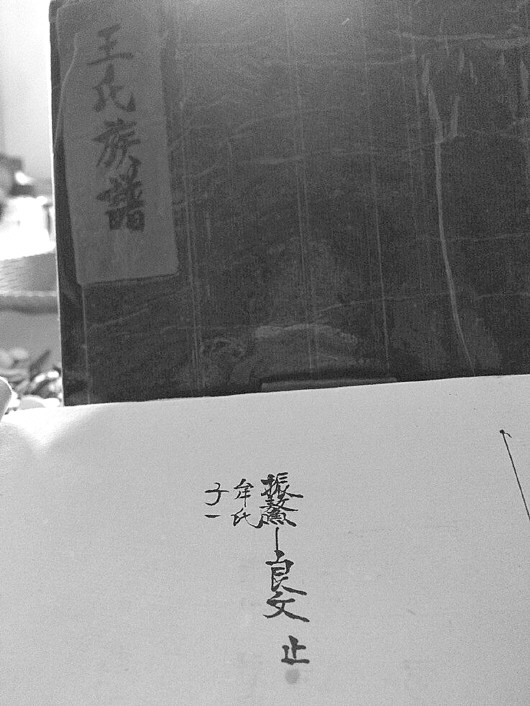 王氏族譜
振鰲
良文
止
牟氏
子一